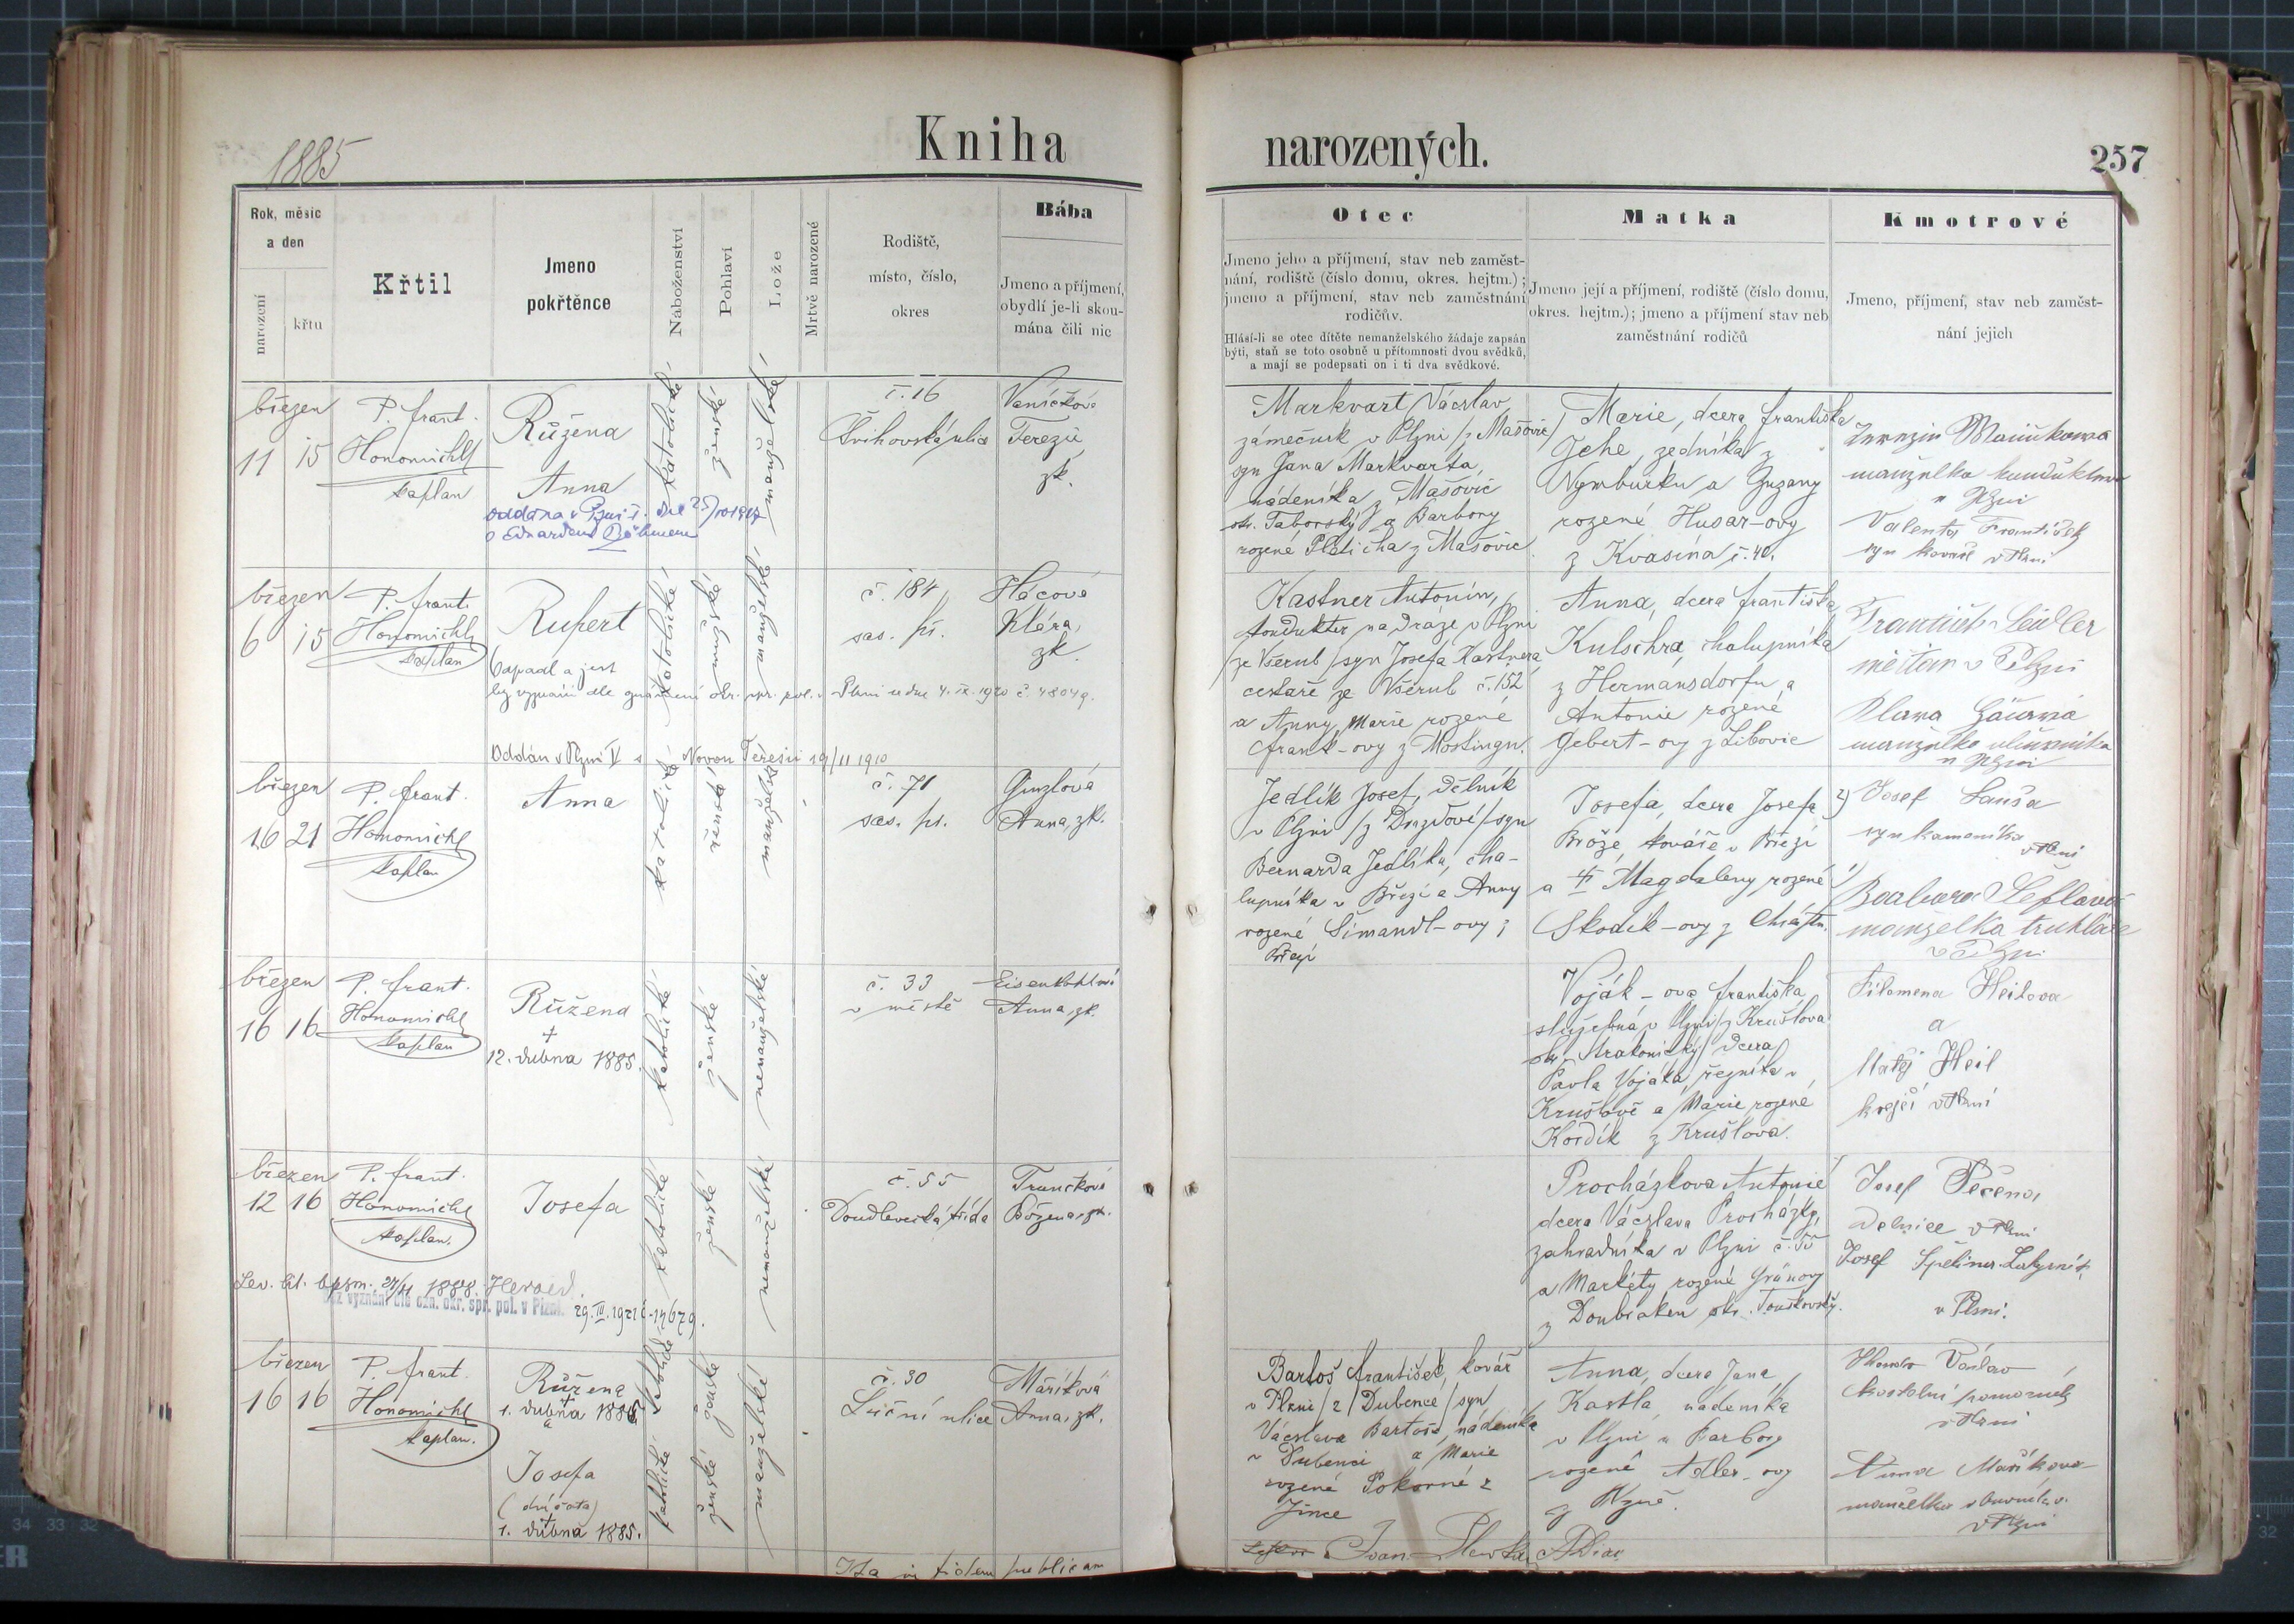 1885
Kniha
narozených.
257
Rok, měsíc
a den
narození
křtu
Křtil
Jmeno
pokřtěnce
Náboženství
Pohlaví
Lože
Mrtvě narozené
Rodiště,
místo, číslo,
okres
Bába
Jmeno a příjmení,
obydlí je-li skou-
mána čili nic
Otec
Jmeno jeho a příjmení, stav neb zaměst-
nání, rodiště (číslo domu, okres. hejtm.);
jmeno a příjmení, stav neb zaměstnání
rodičův.
Hlásí-li se otec dítěte nemanželského žádaje zapsán
býti, staň se toto osobně u přítomnosti dvou svědků,
a mají se podepsati on i ti dva svědkové.
Matka
Jmeno její a příjmení, rodiště (číslo domu,
okres. hejtm.); jmeno a příjmení stav neb
zaměstnání rodičů
Kmotrové
Jmeno, příjmení, stav neb zaměst-
nání jejich
březen
11 15
P. frant.
Honomichl
kaplan
Růžena
Anna
katolické
ženské
manželské
č. 16
Švihovská ulice
Vaníčková
Terezie
zk.
Markvart Václav
zámečník v Plzni /z Mašovic/
syn Jana Markvarta,
nádeníka z Mašovic
okr. Táborský a Barbory
rozené Pleticha z Mašovic
Marie, dcera františka
Jehe, zedníka z
Nymburku a Zuzany
rozené Husar-ovy
z Kvasina č. 40.
manželka
v Plzni
Valenta František
syn kováře v Plzni
březen
6 15
P. frant.
Honomichl
kaplan
Rupert
Odpadl a jest
bez vyznání dle oznámení okr. spr. pol. v Plzni ze dne 4. IX. 1920 č. 4804 q.
Oddán v Plzni s Novou Terezií 19/11 1910
katolické
mužské
manželské
č. 184
sas. př.
Hácová
Klára,
zk.
Kastner Antonín,
konduktér na dráze v Plzni
/ze Všerub/ syn Josefa Kastnera
cestáře ze Všerub č. 152
a Anny Marie rozené
Frank-ovy z Mostingu.
Anna, dcera františka
Kulschra, chalupníka
z Hermansdorfu a
Antonie rozené
Gebert-ovy z Libovic
František Seidler
měšťan v Plzni
Klara
manželka
v Plzni
březen
16 21
P. frant.
Honomichl
kaplan
Anna
katolické
ženské
manželské
č. 71
sas. př.
Ginzlová
Anna, zk.
Jedlík Josef, dělník
v Plzni /z Drozdové/ syn
Bernarda Jedlíka, cha-
lupníka v Březí a Anny
rozené Šimandl-ovy z
Březí
Josefa, dcera Josefa
Brože, kováře v Březí
a Magdaleny rozené
Škodík-ovy z Chrástu.
2) Josef
syn kameníka v Plzni
1) Barbara Šeflová
manželka truhláře
v Plzni
březen
16 16
P. frant.
Honomichl
kaplan
Růžena
†
12. dubna 1885.
katolické
ženské
nemanželské
č. 33
v městě
Anna, zk.
Voják-ova františka
služebná v Plzni /z Krušlova
okr. Strakonický/ dcera
Pavla Vojáka, řezníka v
Krušlově a Marie rozené
Kordík z Krušlova.
Filomena Heilova
a
Matěj Heil
krejčí v Plzni
březen
12 16
P. frant.
Honomichl
kaplan.
Josefa
katolické
ženské
nemanželské
č. 55
Doudlevecká třída
Trunčková
Božena, zk.
bez vyznání dle ozn. okr. spr. pol. v Plzni
Procházkova Antonie
dcera Václava Procházky,
zahradníka v Plzni č. 55
a Markéty rozené Gránovy
z Doubraken okr. Touškovský.
Josef Pečena
v Plzni
Josef
v Plzni.
březen
16 16
P. frant.
Honomichl
kaplan.
Růžena
†
1. dubna 1885
a
Josefa
(dvojčata)
†
1. dubna 1885.
katolické
ženské
katolické
ženské
manželské
č. 30
Luční ulice
Maříková
Anna, zk.
Bartoš František, kovář
v Plzni /z Dubence/ syn
Václava Bartoše, nádeníka
v Dubenci a Marie
rozené Pokorné z
Jince
Anna, dcera Jana
Kastla nádeníka
v Plzni a Barbory
rozené Adler-ovy
z Plzně.
Václav
kostelní pomocník
v Plzni
Anna Maříkova
manželka
v Plzni
Ita in fidem publicam